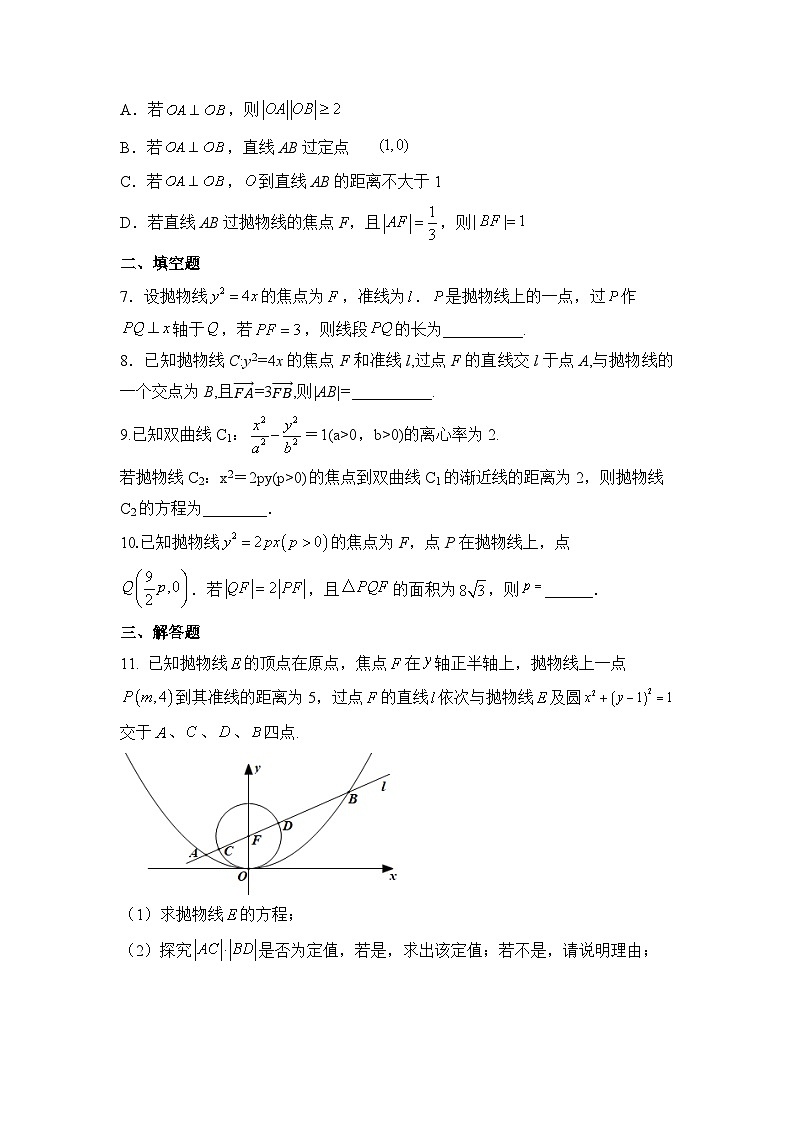 A．若OA⊥OB，则|OA||OB|≥2
B．若OA⊥OB，直线AB过定点 (1,0)
C．若OA⊥OB，O到直线AB的距离不大于1
D．若直线AB过抛物线的焦点F，且|AF|=1/3，则|BF|=1
二、填空题
7．设抛物线y²=4x的焦点为F，准线为l．P是抛物线上的一点，过P作
PQ⊥x轴于Q，若PF=3，则线段PQ的长为__________.
8．已知抛物线C:y²=4x的焦点F和准线l,过点F的直线交l于点A,与抛物线的
一个交点为B,且→FA=3→FB,则|AB|=__________.
9.已知双曲线C₁：x²/a²−y²/b²＝1(a>0，b>0)的离心率为2.
若抛物线C₂：x²＝2py(p>0)的焦点到双曲线C₁的渐近线的距离为2，则抛物线
C₂的方程为________．
10.已知抛物线y²=2px(p>0)的焦点为F，点P在抛物线上，点
Q(9/2p,0)．若|QF|=2|PF|，且△PQF的面积为8√3，则p=______．
三、解答题
11. 已知抛物线E的顶点在原点，焦点F在y轴正半轴上，抛物线上一点
P(m,4)到其准线的距离为5，过点F的直线l依次与抛物线E及圆x²+(y−1)²=1
交于A、C、D、B四点.
y
l
B
D
F
A
C
O
x
（1）求抛物线E的方程；
（2）探究|AC|·|BD|是否为定值，若是，求出该定值；若不是，请说明理由；